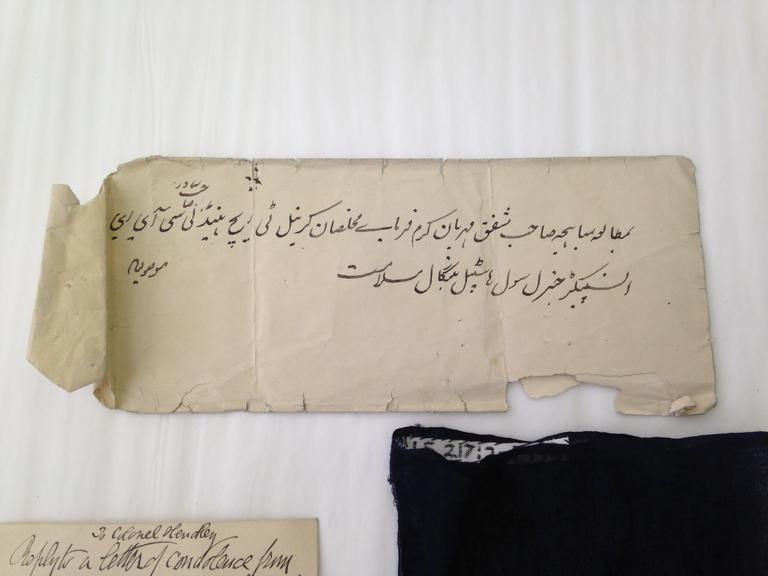 بمطالعہ ساہجیہ صاحب مشفق مہربان کرم فرمایے مخلصان کرنیل ٹی ایچ ہینڈلی صاحب بہادر سی آی ای
انسپکٹر جنرل سول ہاسپٹل بنگال سلامت
موصولہ
To Colonel Hendley
Reply to a letter of condolence from